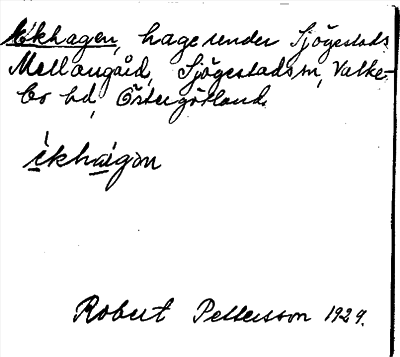 Ekhagen, hage under Sjögestads
Mellangård, Sjögestads sn, Valke-
bo hd, Östergötland.
èkhàigon
Robert Pettersson 1929.